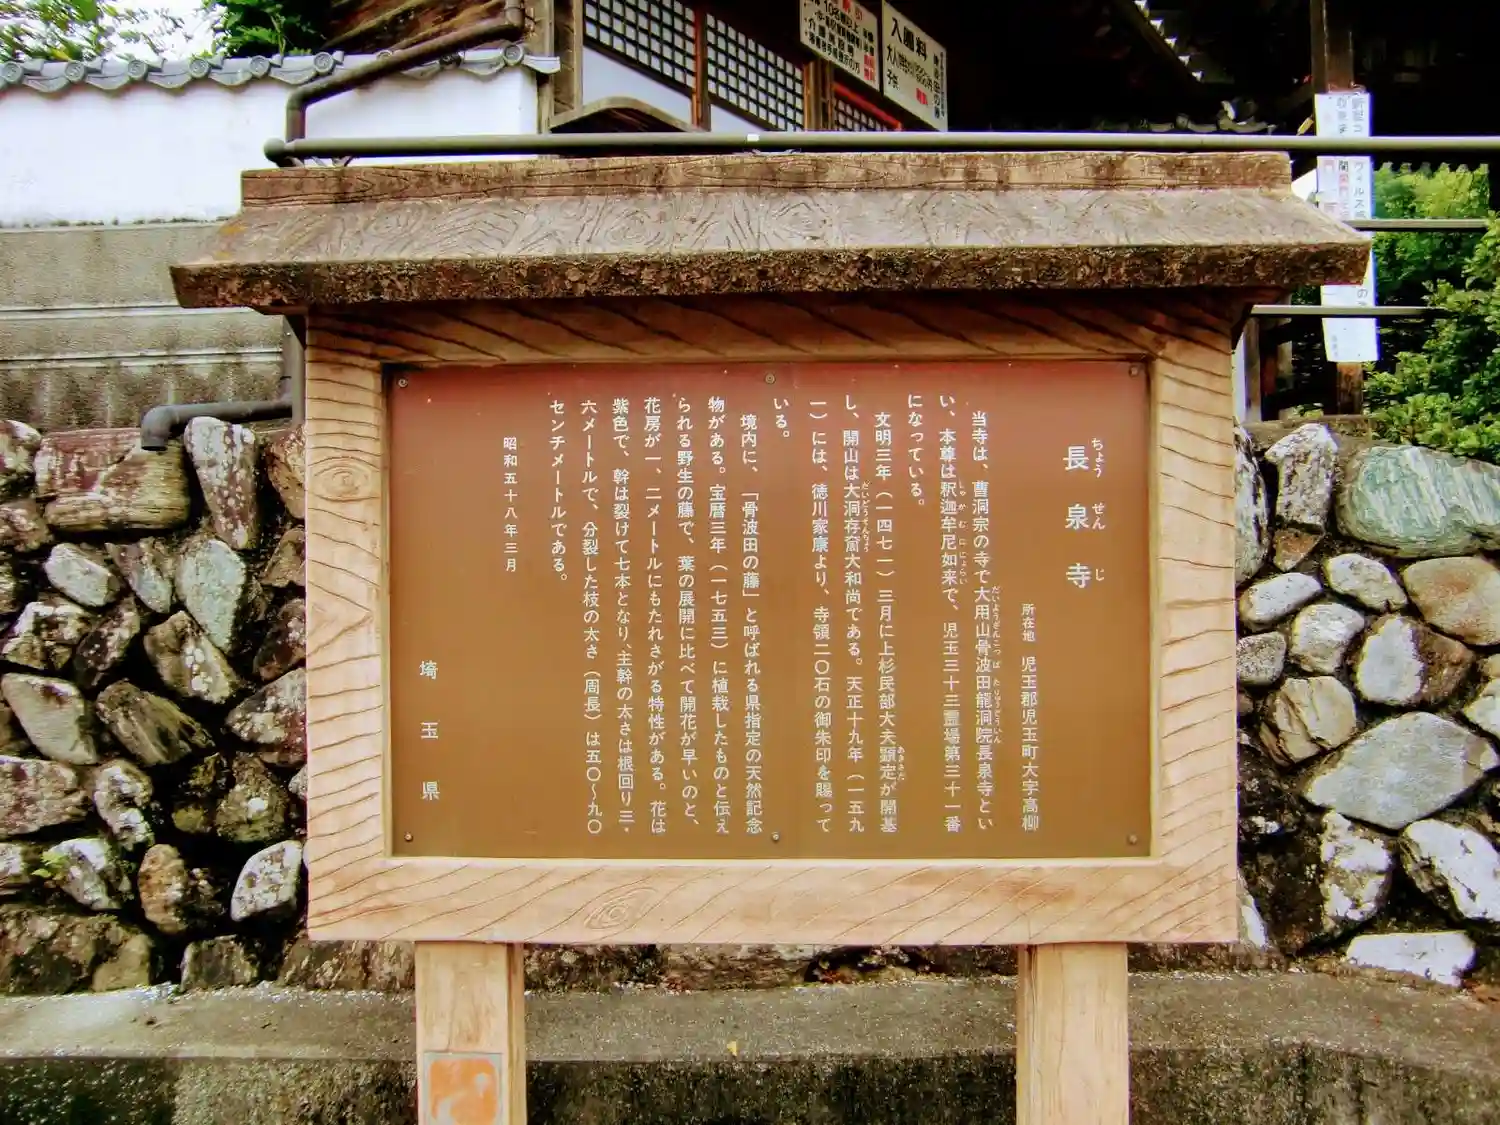 長泉寺
ちょうせんじ
所在地　児玉郡児玉町大字高柳
当寺は、曹洞宗の寺で大用山骨波田龍洞院長泉寺とい
い、本尊は釈迦牟尼如来で、児玉三十三霊場第三十一番
になっている。
文明三年（一四七一）三月に上杉民部大夫顕定が開基
し、開山は大洞存奝大和尚である。天正十九年（一五九
一）には、徳川家康より、寺領二〇石の御朱印を賜って
いる。
境内に、「骨波田の藤」と呼ばれる県指定の天然記念
物がある。宝暦三年（一七五三）に植栽したものと伝え
られる野生の藤で、葉の展開に比べて開花が早いのと、
花房が一、二メートルにもたれさがる特性がある。花は
紫色で、幹は裂けて七本となり、主幹の太さは根回り三・
六メートルで、分裂した枝の太さ（周長）は五〇〜九〇
センチメートルである。
昭和五十八年三月
埼玉県
入園料